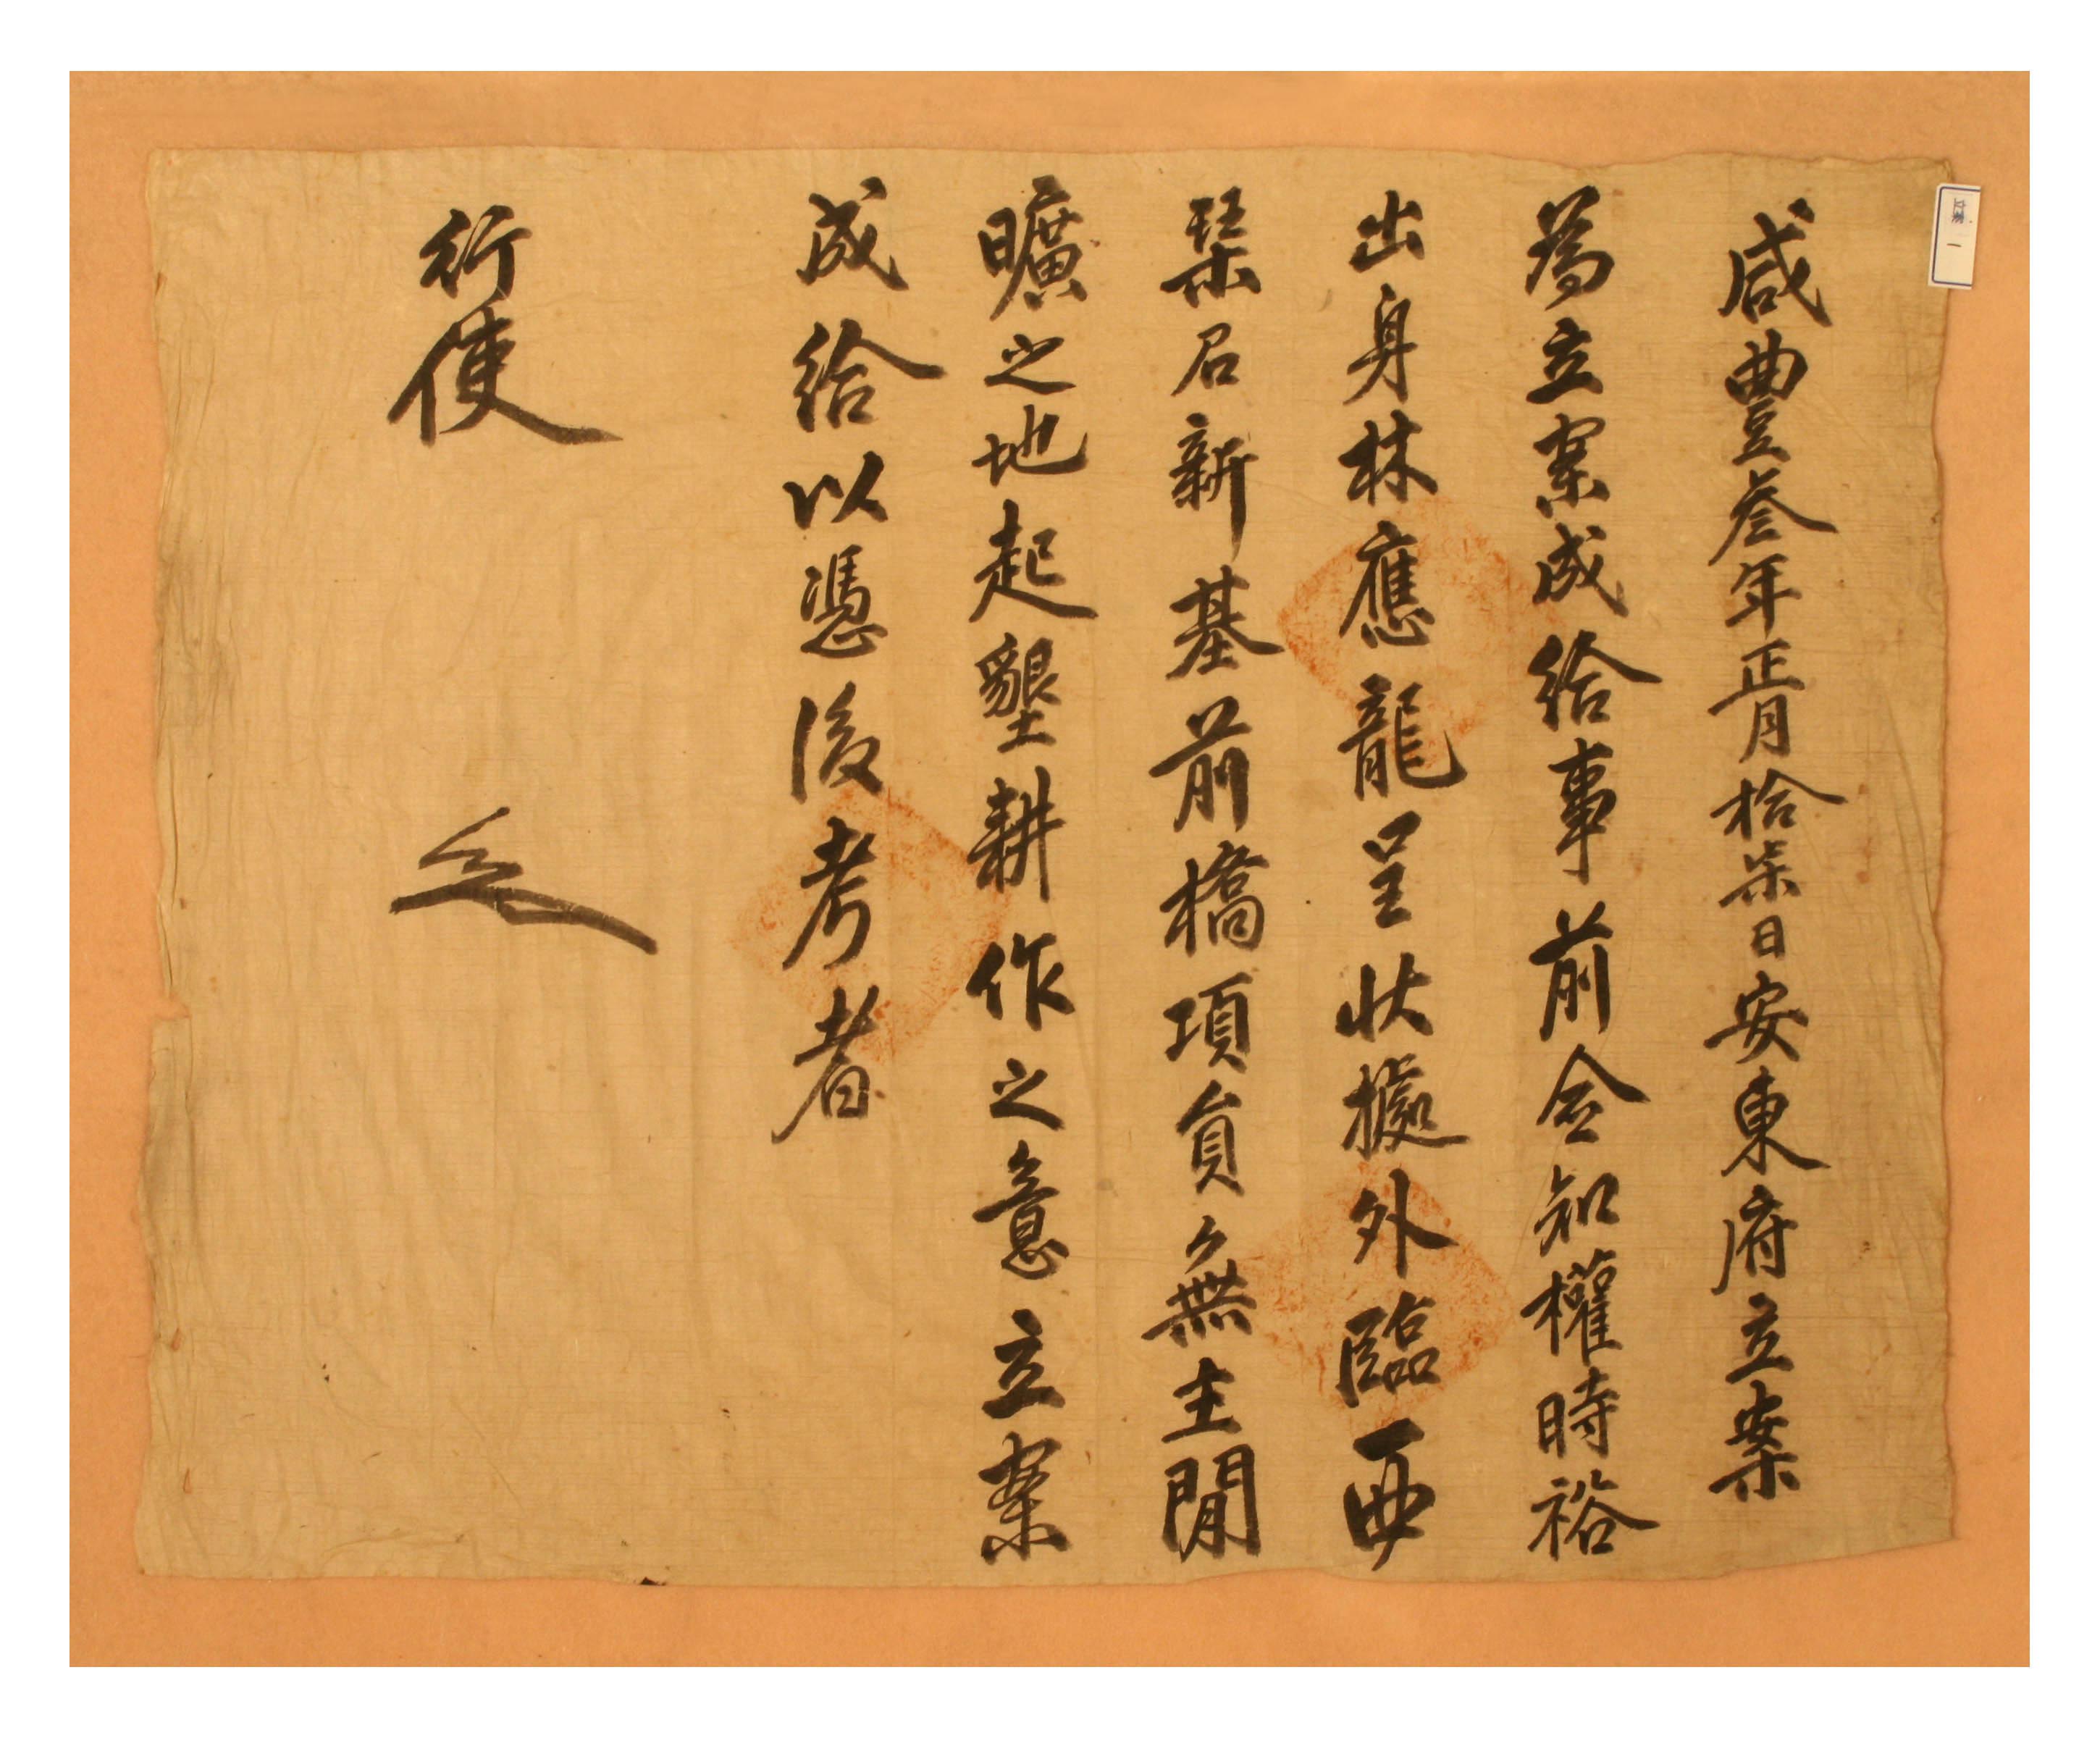 咸豐叄年正月拾柒日安東府立案
為立案成給事前僉知權時裕
出身林應龍呈狀據外臨西
琹召新基前橋項員無主閒
曠之地起墾耕作之意立案
成給以憑後考者
行使